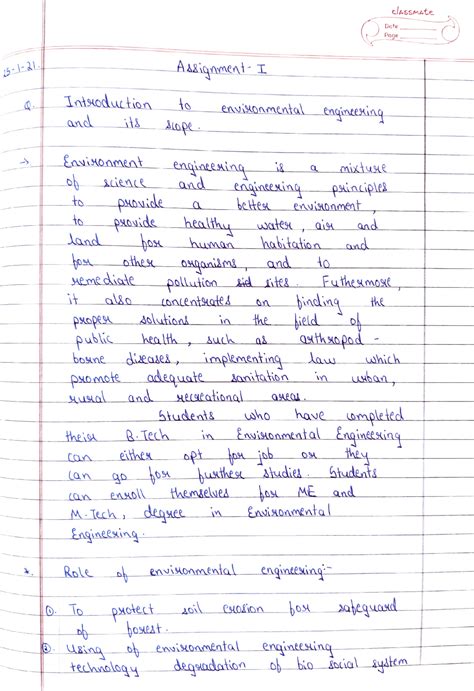 classmate
Date
Page
25-1-21.
Assignment - I
Q. Introduction to environmental engineering
and its scope.
→ Environment engineering is a mixture
of science and engineering principles
to provide a better environment,
to provide healthy water, air and
land for human habitation and
for other organisms, and to
remediate pollution sites. Futhermore,
it also concentrates on finding the
proper solutions in the field of
public health, such as arthropod -
borne diseases, implementing law which
promote adequate sanitation in urban,
rural and recreational areas.
Students who have completed
their B.Tech in Environmental Engineering
can either opt for job or they
can go for further studies. Students
can enroll themselves for ME and
M.Tech, degree in Environmental
Engineering.
*. Role of environmental engineering:-
①. To protect soil erosion for safeguard
of forest.
②. Using of environmental engineering
technology degradation of bio social system